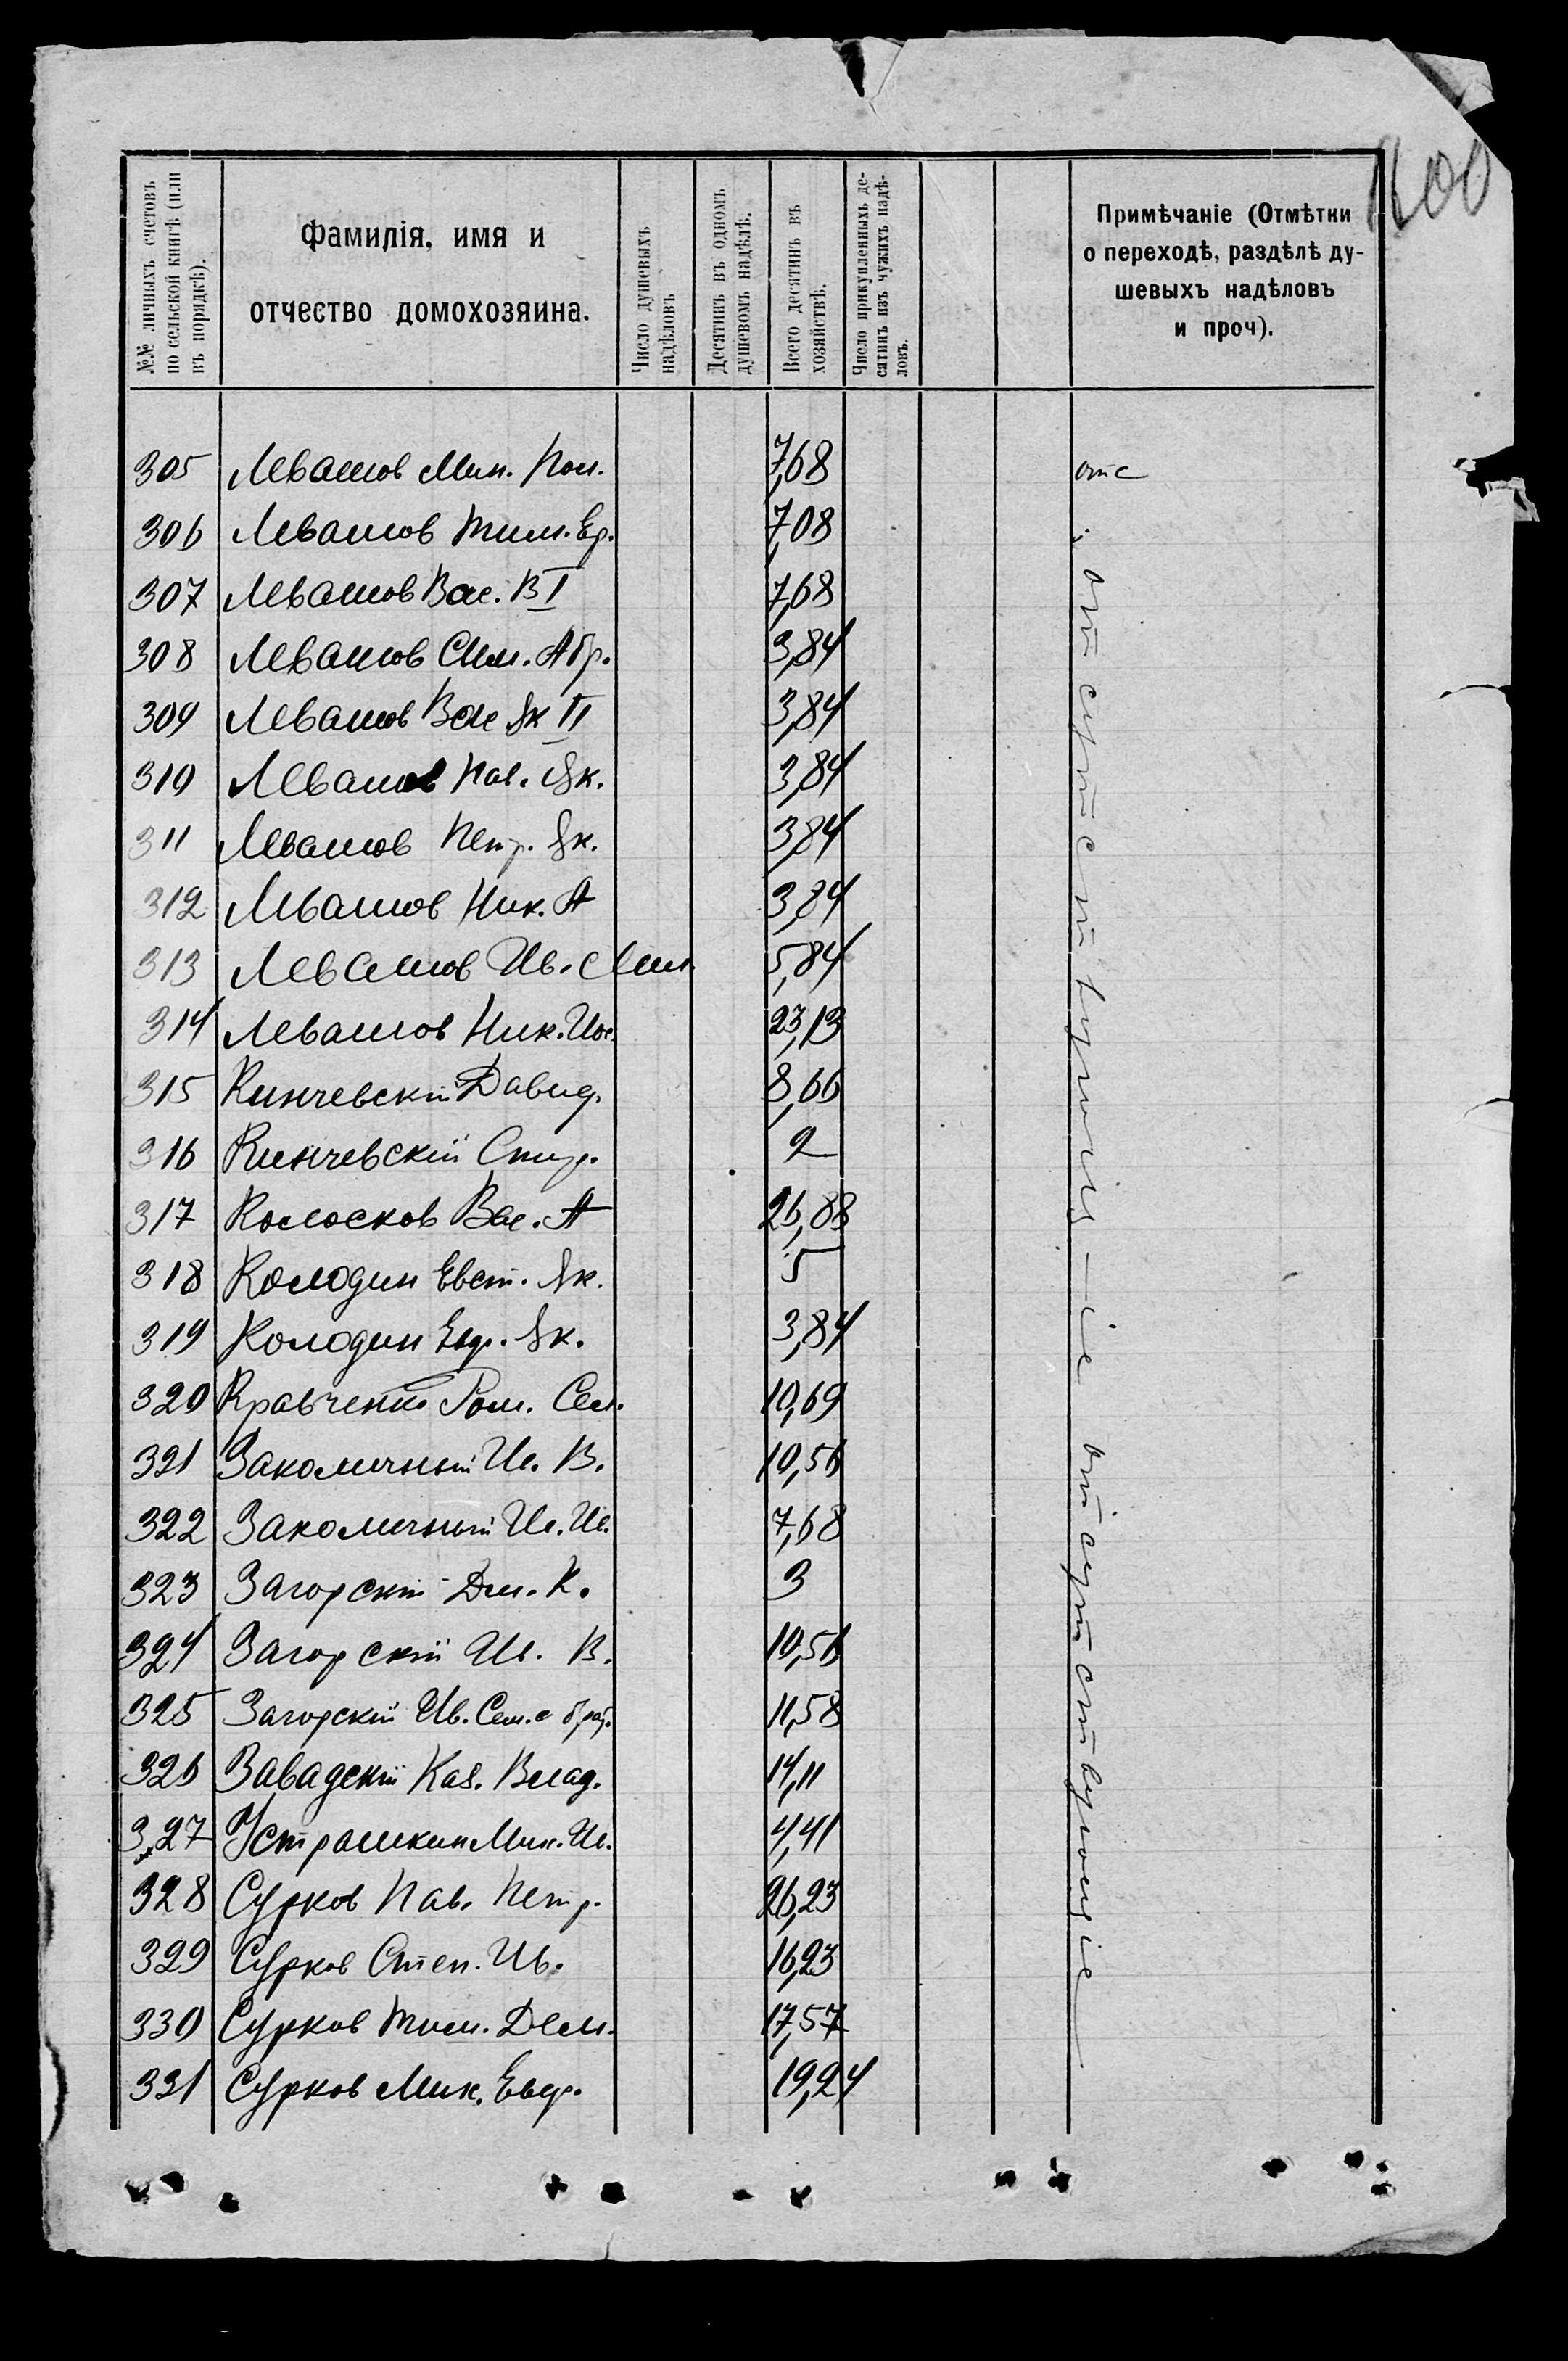 1600
№№ личныхъ счетовъ по сельской книгѣ (или въ порядкѣ).
Фамилія, имя и отчество домохозяина.
Число душевыхъ надѣловъ
Десятинъ въ одномъ душевомъ надѣлѣ.
Всего десятинъ въ хозяйствѣ.
Число прикупленныхъ десятинъ изъ чужихъ надѣловъ.
Примѣчаніе (Отмѣтки о переходѣ, раздѣлѣ душевыхъ надѣловъ и проч).
305 Левашов Мин. Пом. 7,68 отс
306 Левашов Тим. Ер. 7,08
307 Левашов Вас. В I 7,68
308 Левашов Сем. Абр. 3,84
309 Левашов Вас Як II 3,84
310 Левашов Пав. Як. 3,84
311 Левашов Петр. Як. 3,84
312 Левашов Ник. А 3,84
313 Левашов Ив. Мин. 5,84
314 Левашов Ник. Иос. 23,13
315 Кинчевскій Давид. 8,66
316 Кинчевскій Спир. 2
317 Колосков Вас. А 26,88
318 Колодин Евст. Як. 5
319 Колодин Евдр. Як. 3,84
320 Кравченко Ром. Сем. 10,69
321 Заколичный Ив. В. 10,56
322 Заколичный Ив. Ив. 7,68
323 Загорскій Дм. К. 3
324 Загорскій Ив. В. 10,56
325 Загорскій Ив. Сем. с брат. 11,58
326 Завадскій Каз. Влад. 14,11
327 Устрашкин Мих. Ив. 4,41
328 Сурков Пав. Петр. 26,23
329 Сурков Степ. Ив. 16,23
330 Сурков Тим. Дем. 17,57
331 Сурков Мих. Евдр. 19,24
отсутствующіе отсутствующіе